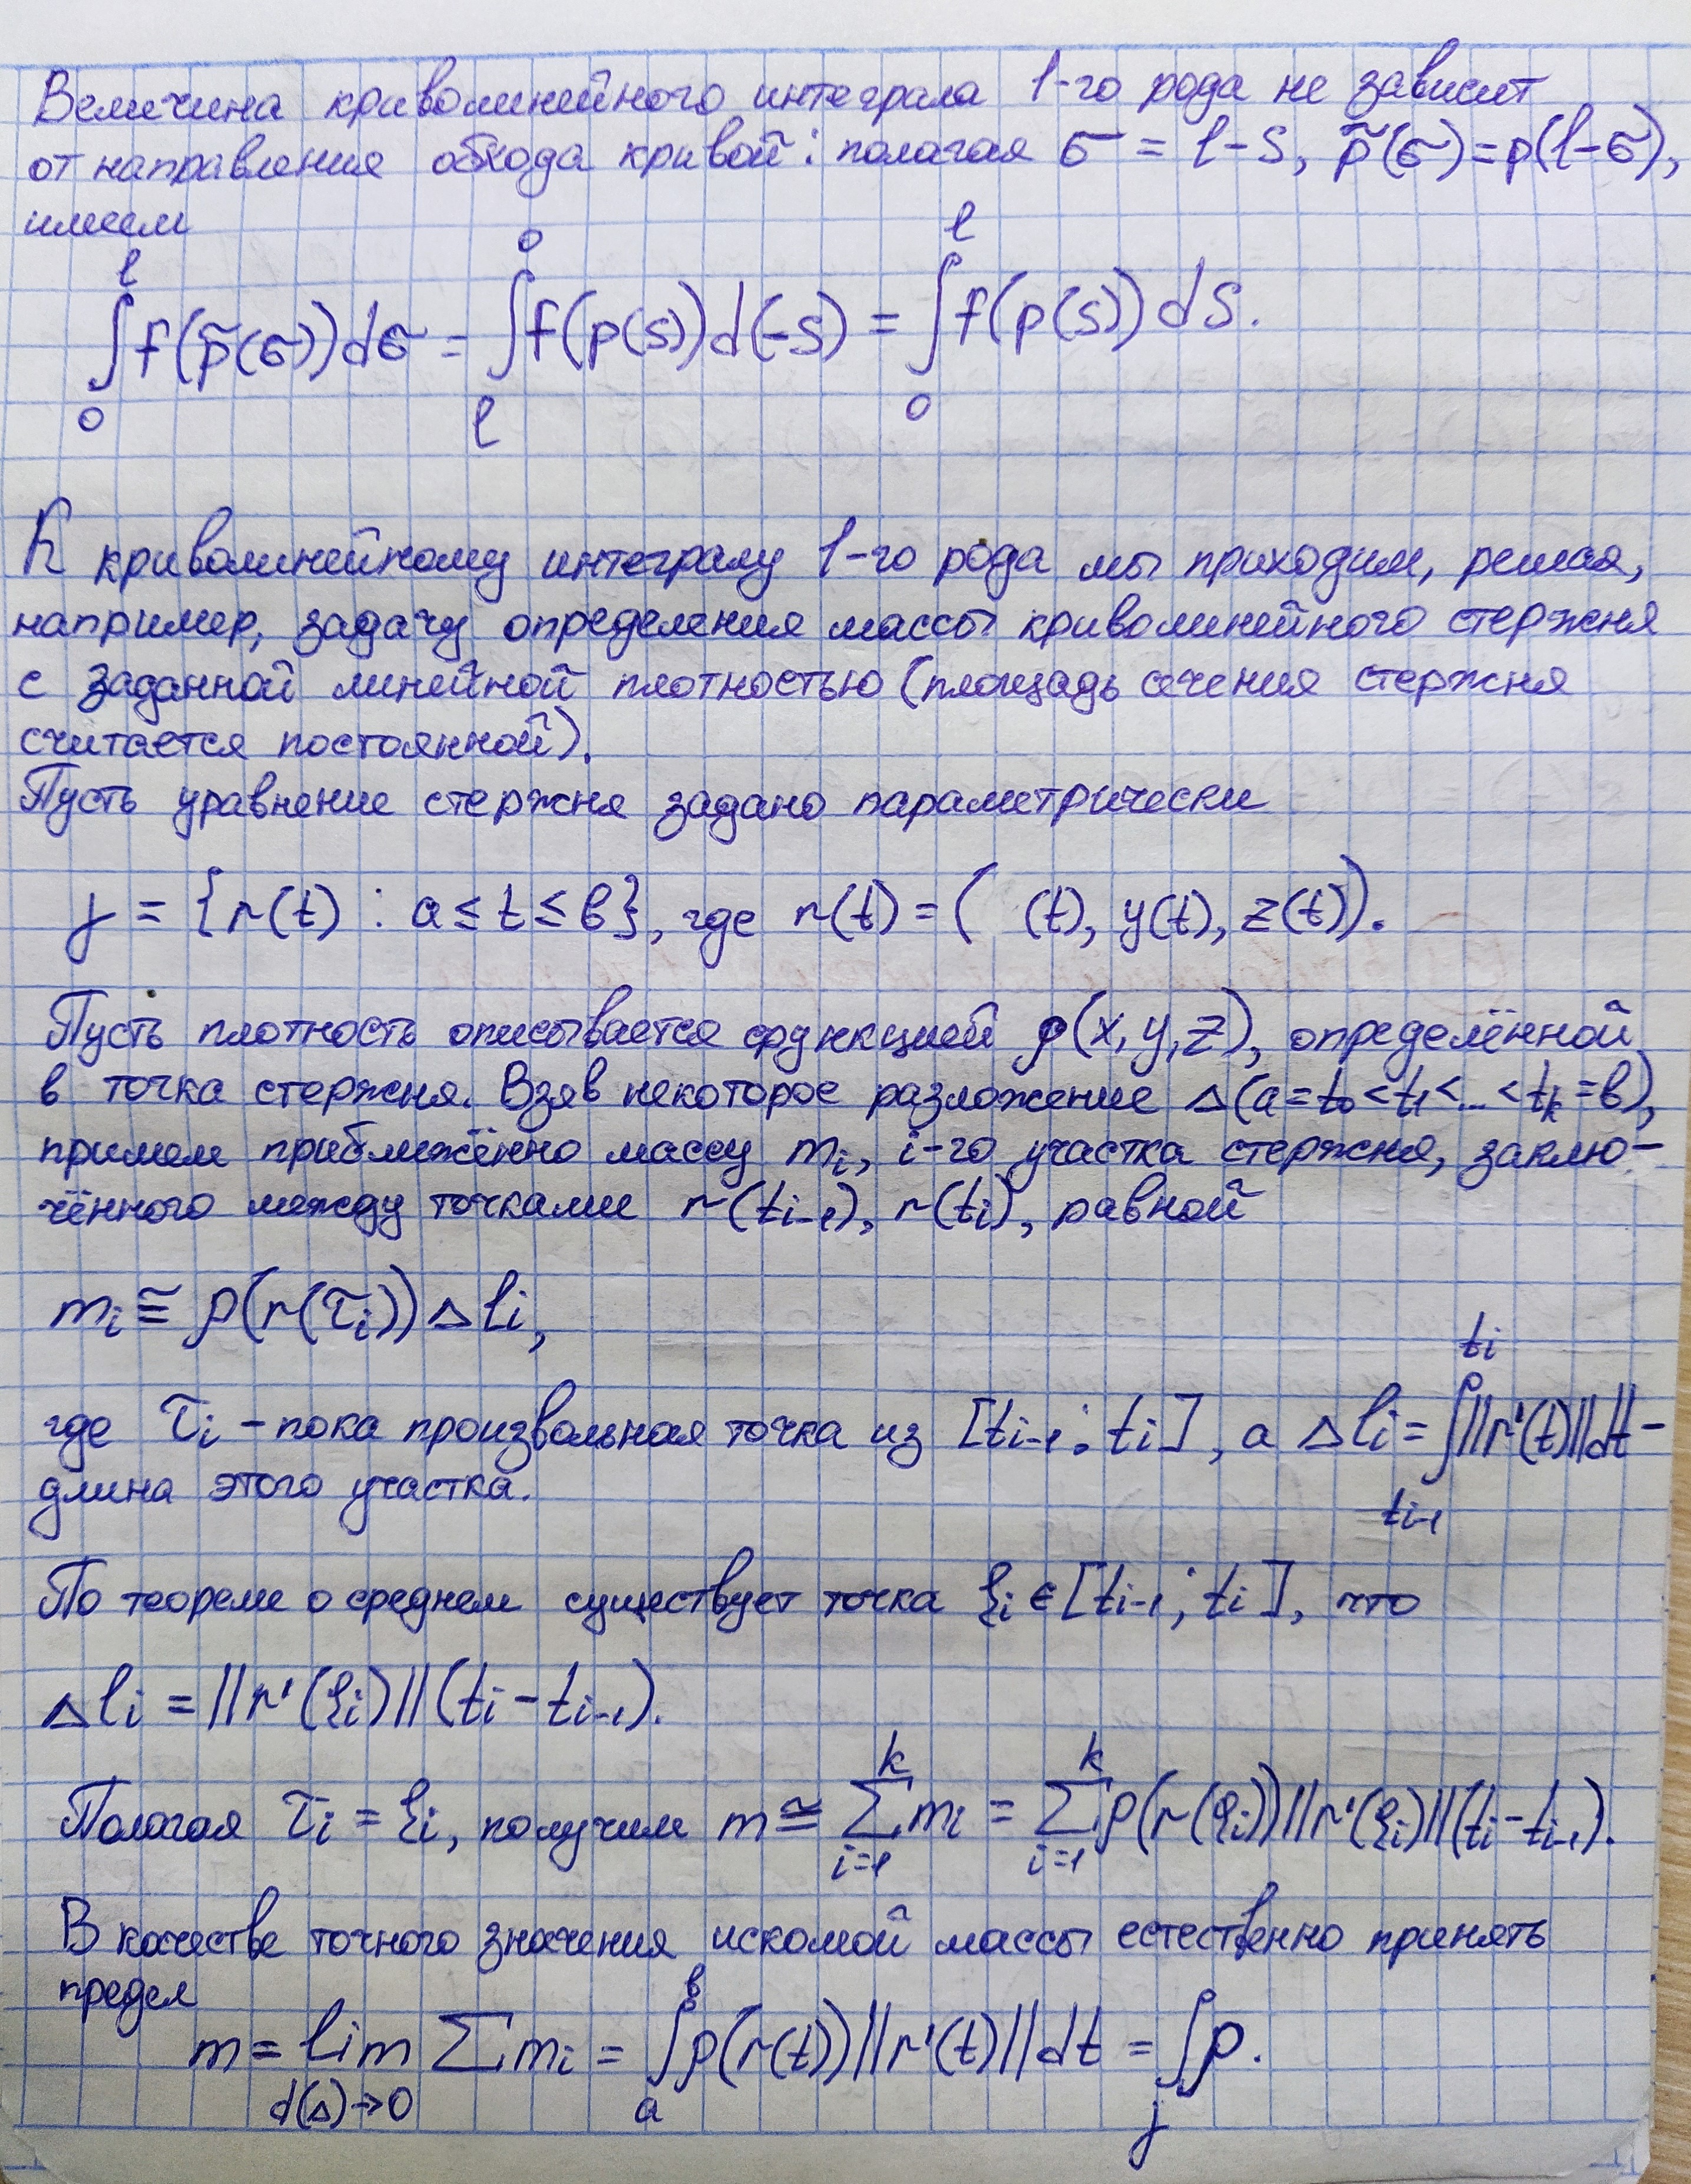 Величина криволинейного интеграла 1-го рода не зависит
от направления обхода кривой: полагая σ = l-s, p̃(σ)=p(l-σ),
имеем
∫₀ˡ f(p̃(σ))dσ = ∫ₗ⁰ f(p(s))d(-s) = ∫₀ˡ f(p(s))ds.
К криволинейному интегралу 1-го рода мы приходим, решая,
например, задачу определения массы криволинейного стержня
с заданной линейной плотностью (площадь сечения стержня
считается постоянной).
Пусть уравнение стержня задано параметрически
γ = {r(t) : a ≤ t ≤ b}, где r(t) = ( (t), y(t), z(t)).
Пусть плотность описывается функцией ρ(x, y, z), определённой
в точка стержня. Взяв некоторое разложение Δ(a=t₀<t₁<...<tₖ=b),
примем приближённо массу mᵢ, i-го участка стержня, заклю-
чённого между точками r(tᵢ₋₁), r(tᵢ), равной
mᵢ ≅ ρ(r(τᵢ))Δlᵢ,
где τᵢ - пока произвольная точка из [tᵢ₋₁; tᵢ], а Δlᵢ = ∫_{tᵢ₋₁}^{tᵢ} ||r'(t)||dt -
длина этого участка.
По теореме о среднем существует точка ξᵢ ∈ [tᵢ₋₁; tᵢ], что
Δlᵢ = ||r'(ξᵢ)||(tᵢ - tᵢ₋₁).
Полагая τᵢ = ξᵢ, получим m ≅ ∑_{i=1}^{k} mᵢ = ∑_{i=1}^{k} ρ(r(ξᵢ))||r'(ξᵢ)||(tᵢ - tᵢ₋₁).
В качестве точного значения искомой массы естественно принять
предел
m = lim_{d(Δ)→0} ∑mᵢ = ∫ₐᵇ ρ(r(t))||r'(t)||dt = ∫_γ ρ.